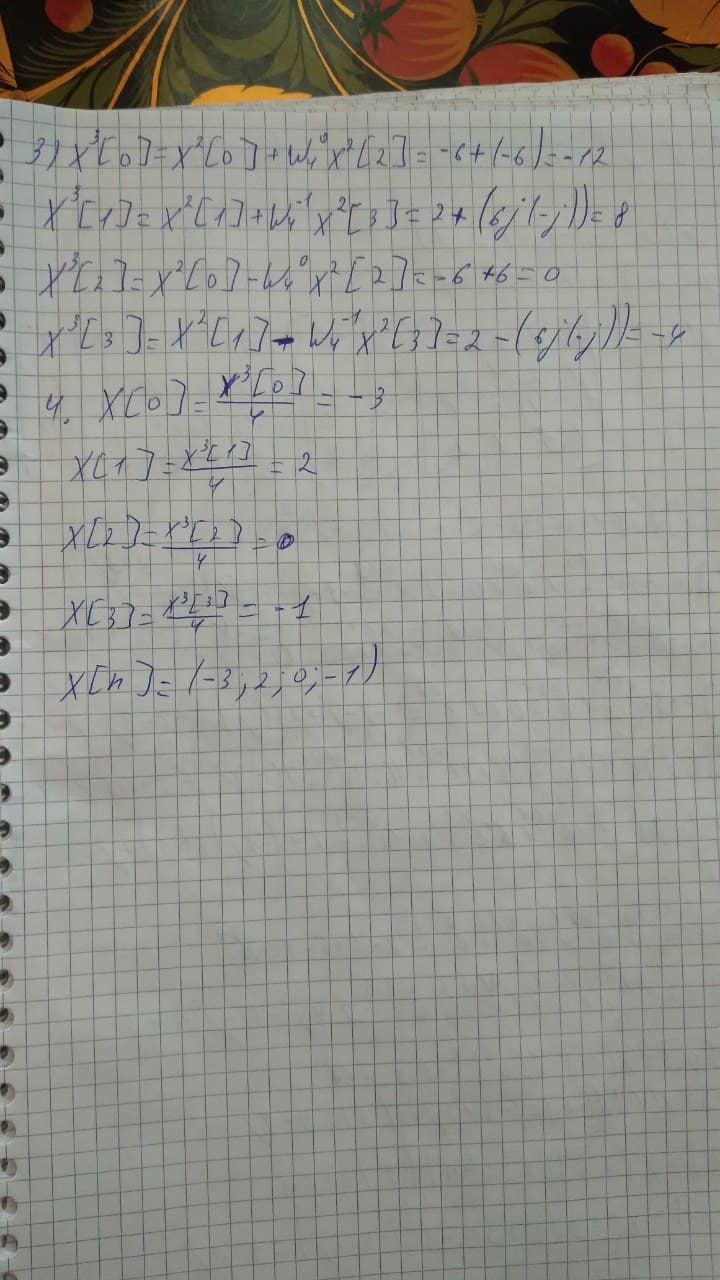 3) X³[0]=X²[0]+W₄⁰X²[2]=-6+(-6)=-12
X³[1]=X²[1]+W₄⁻¹X²[3]=2+(6j(-j))=8
X³[2]=X²[0]-W₄⁰X²[2]=-6+6=0
X³[3]=X²[1]-W₄⁻¹X²[3]=2-(6j(-j))=-4
4. X[0]=X³[0]/4=-3
X[1]=X³[1]/4=2
X[2]=X³[2]/4=0
X[3]=X³[3]/4=-1
X[n]=(-3;2;0;-1)